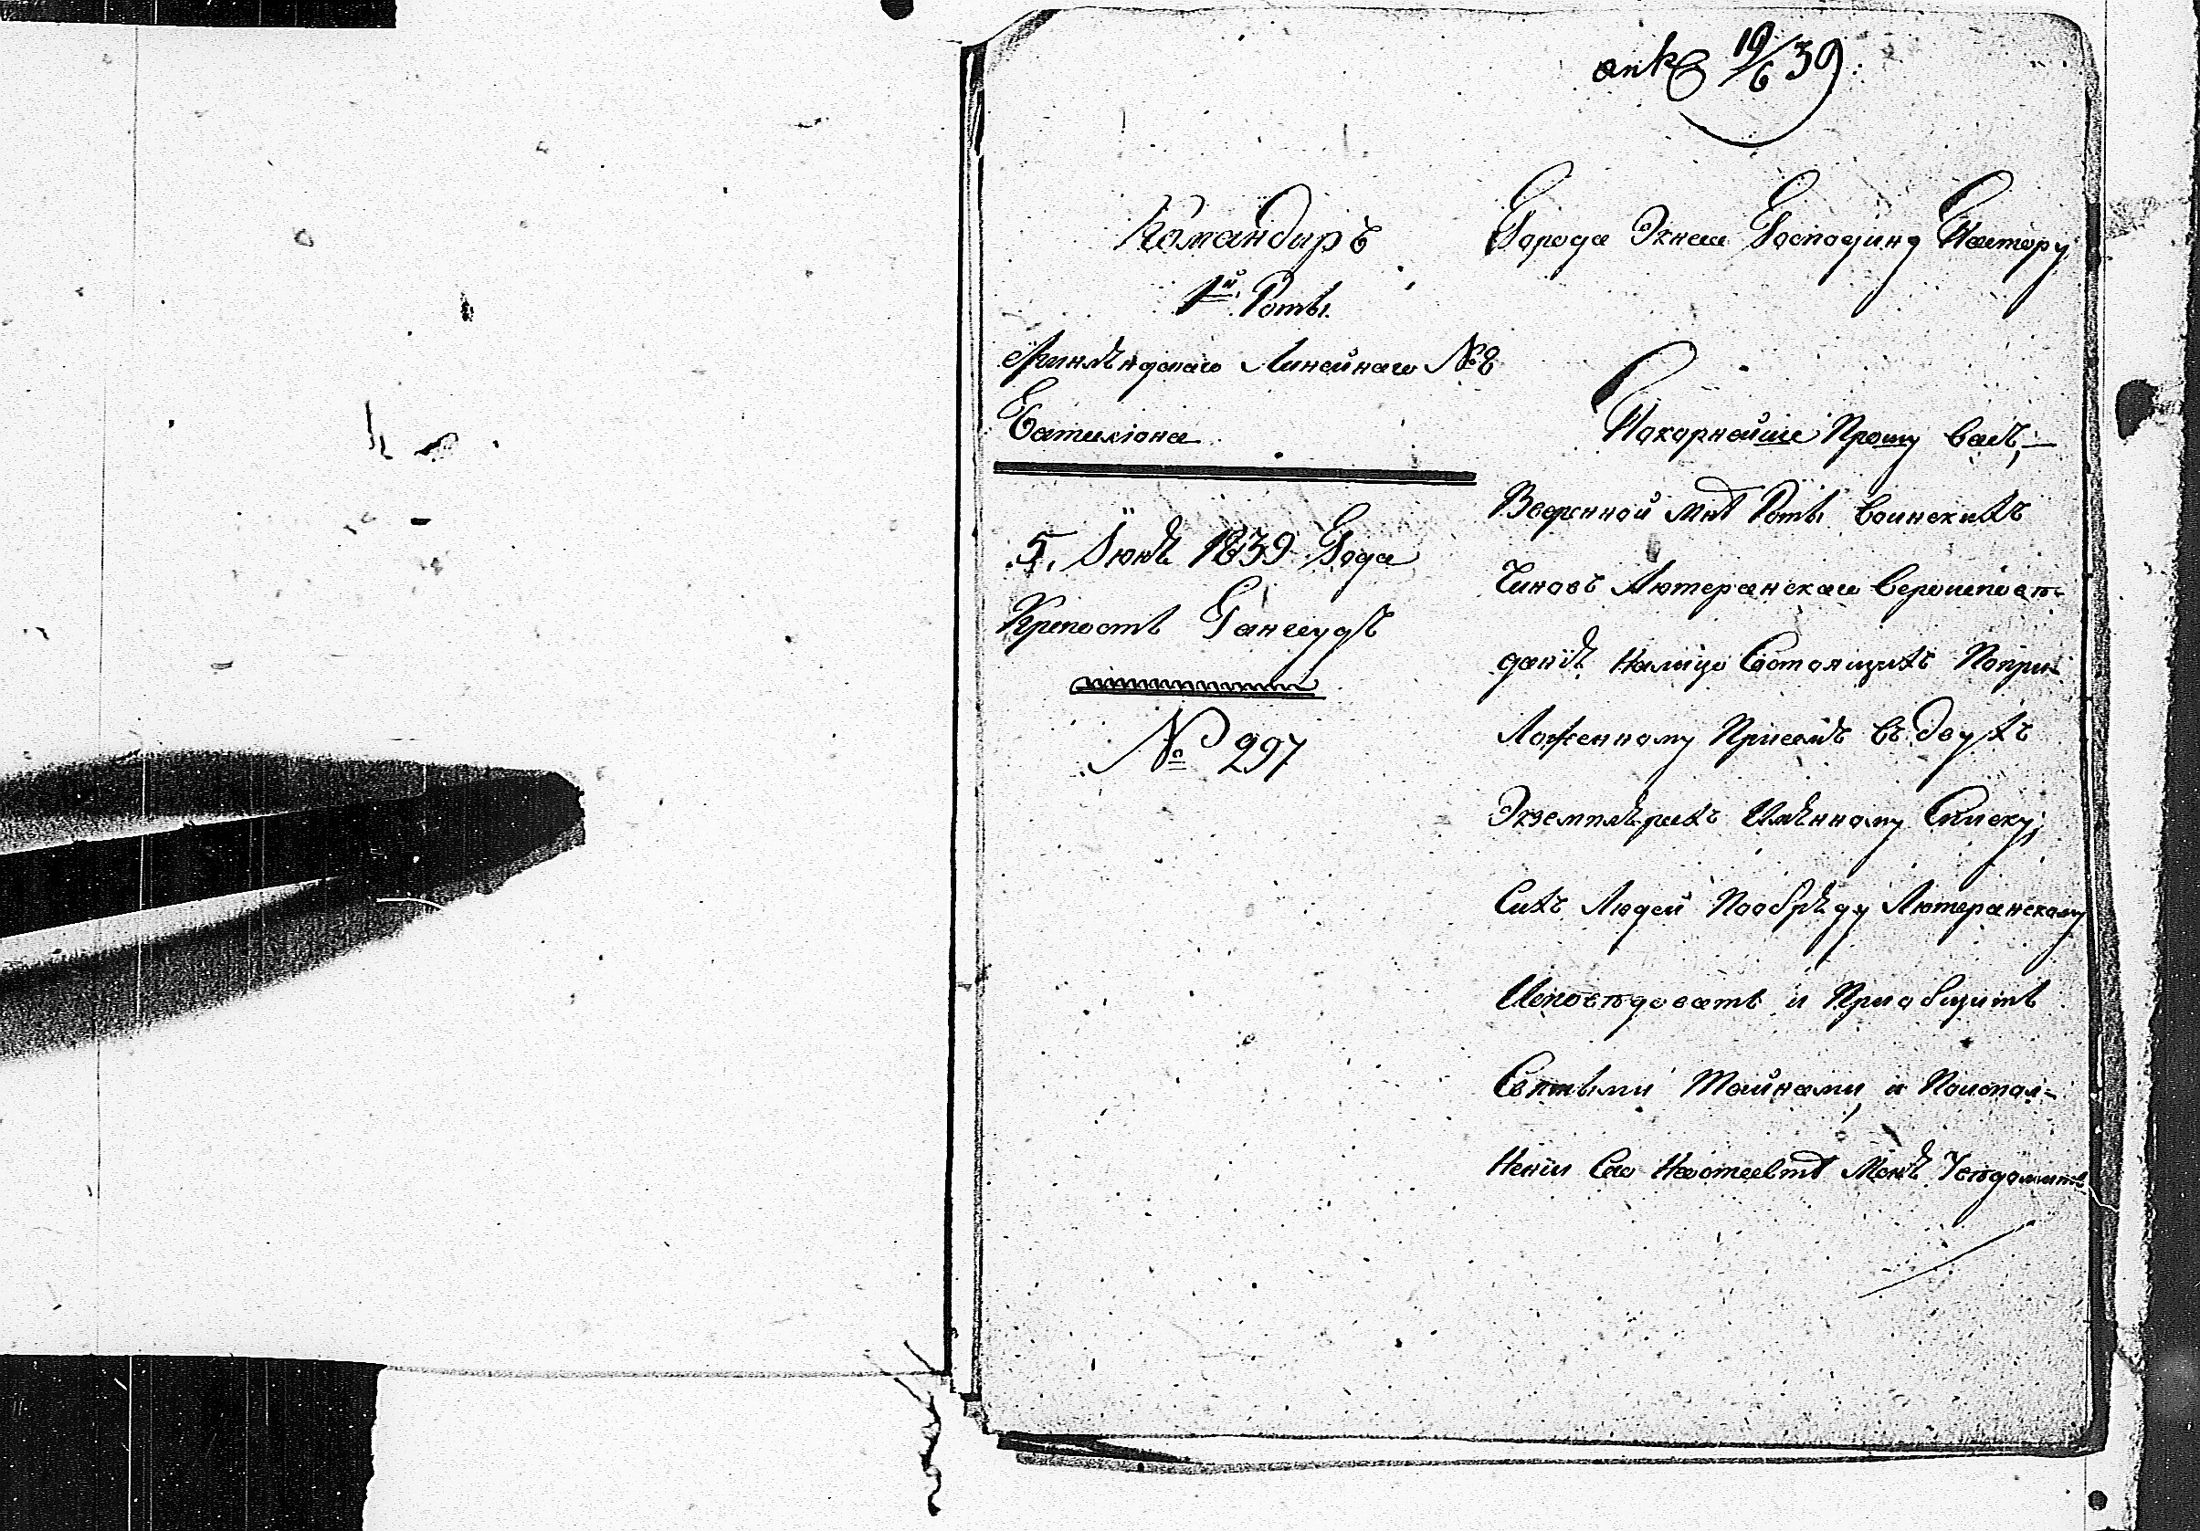 ank 19/6 39.
Командиръ
1й. Роты
Финлѣндскаго Линейнаго №8
Баталiона
5. Iюнѣ 1839 Года
Крепость Гангеудъ
№ 297
Города Экнеса Господину Пастору
Покорнейше Прошу васъ,
Вверенной мнѣ Роты воинскихъ
Чиновъ Лютеранскаго вероисповѣ-
данiѣ Налицо Состоящихъ Попри-
Ложенному Присемъ въ двухъ
Экземплѣрахъ Имѣнному Списку,
Сихъ Людей Пообрѣду Лютеранскому
Исповѣдовать и Приобщить
Святыми Тайнами, и Поисполъ-
ненiи Сего Неоставте Менѣ Уведомить